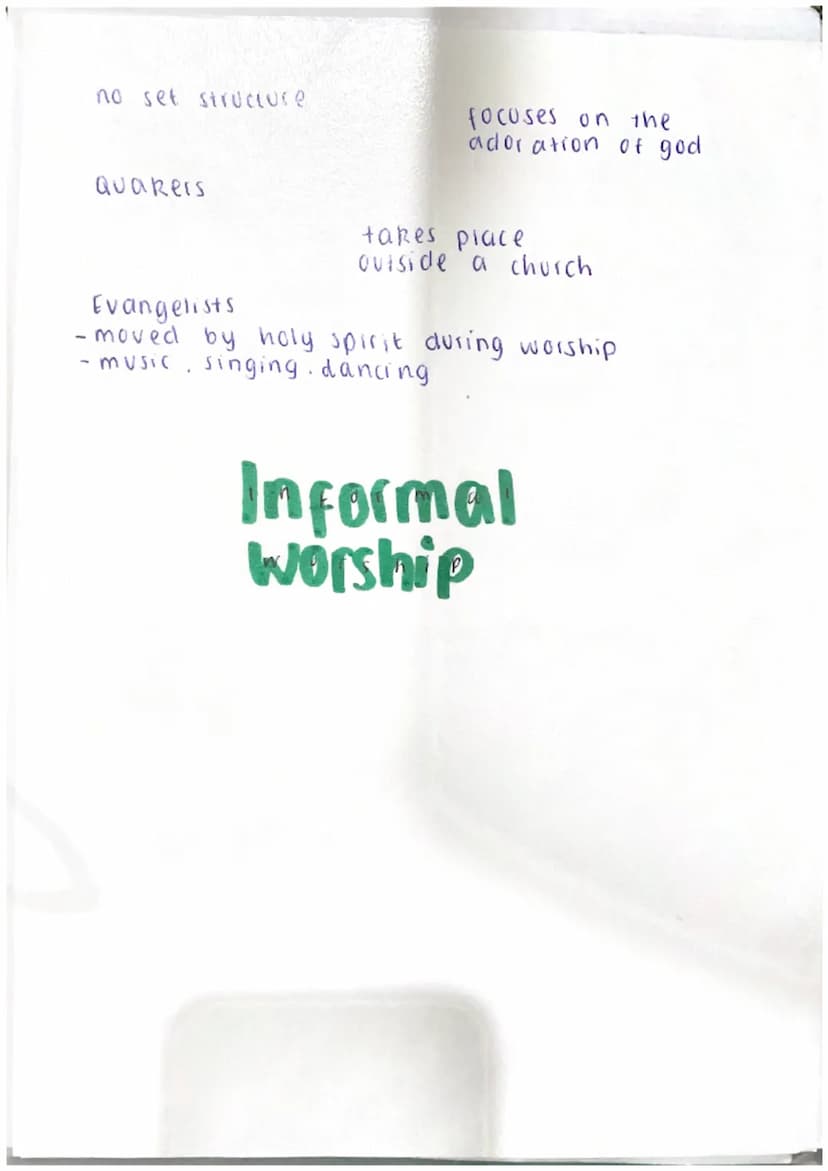 no set structure
focuses on the
adoration of god
Quakers
takes place
outside a church
Evangelists
- moved by holy spirit during worship
- music, singing, dancing
Informal
worship